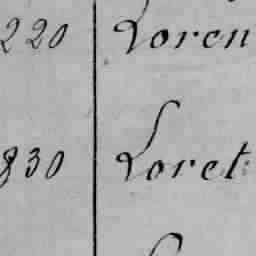 220 Loren
830 Loret